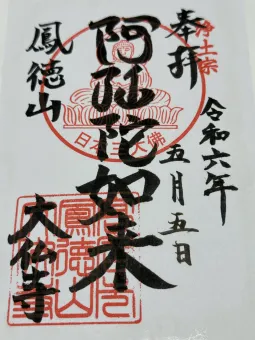 奉拝
浄土宗
令和六年
五月五日
阿弥陀如来
日本三大佛
鳳徳山
大仏寺
鳳徳山